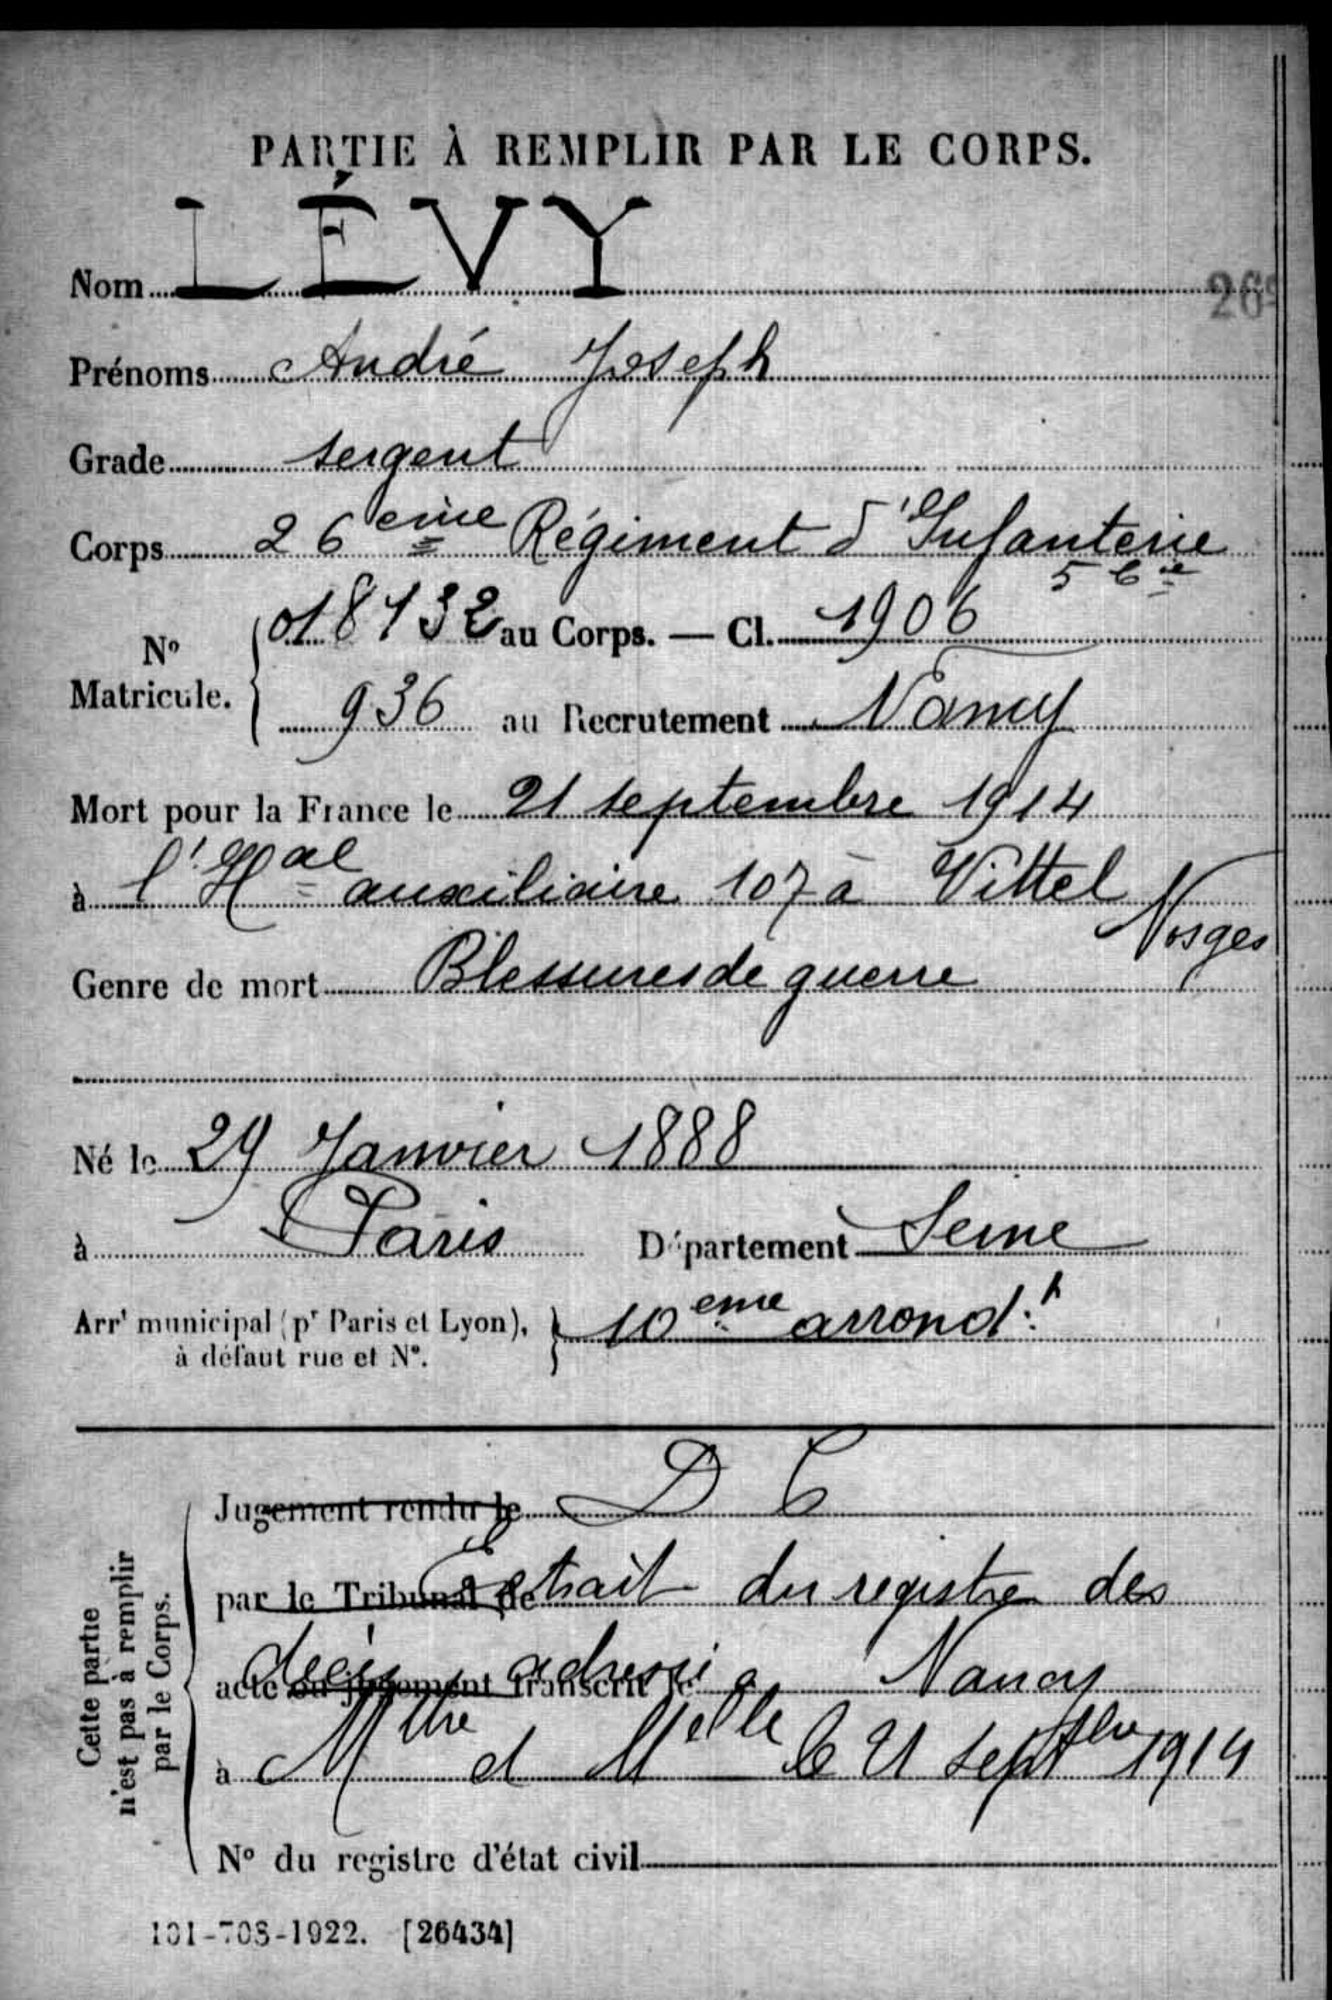 PARTIE À REMPLIR PAR LE CORPS.
Nom LÉVY
26e
Prénoms André Joseph
Grade sergent
Corps 26eme Régiment d'Infanterie
5 Cie
No Matricule. 018132 au Corps. — Cl. 1906
936 au Recrutement Nancy
Mort pour la France le 21 septembre 1914
à l'Hal auxiliaire 107 à Vittel
Vosges
Genre de mort Blessures de guerre
Né le 29 Janvier 1888
à Paris Département Seine
Arrt municipal (pr Paris et Lyon), 10eme arrondt
à défaut rue et No.
Cette partie
n'est pas à remplir
par le Corps.
Jugement rendu le D C
par le Tribunal de Extrait du registre des
acte ou jugement transcrit le décès adressé a Nancy
à Mthe et Melle le 21 septbre 1914
No du registre d'état civil
101-708-1922. [26434]